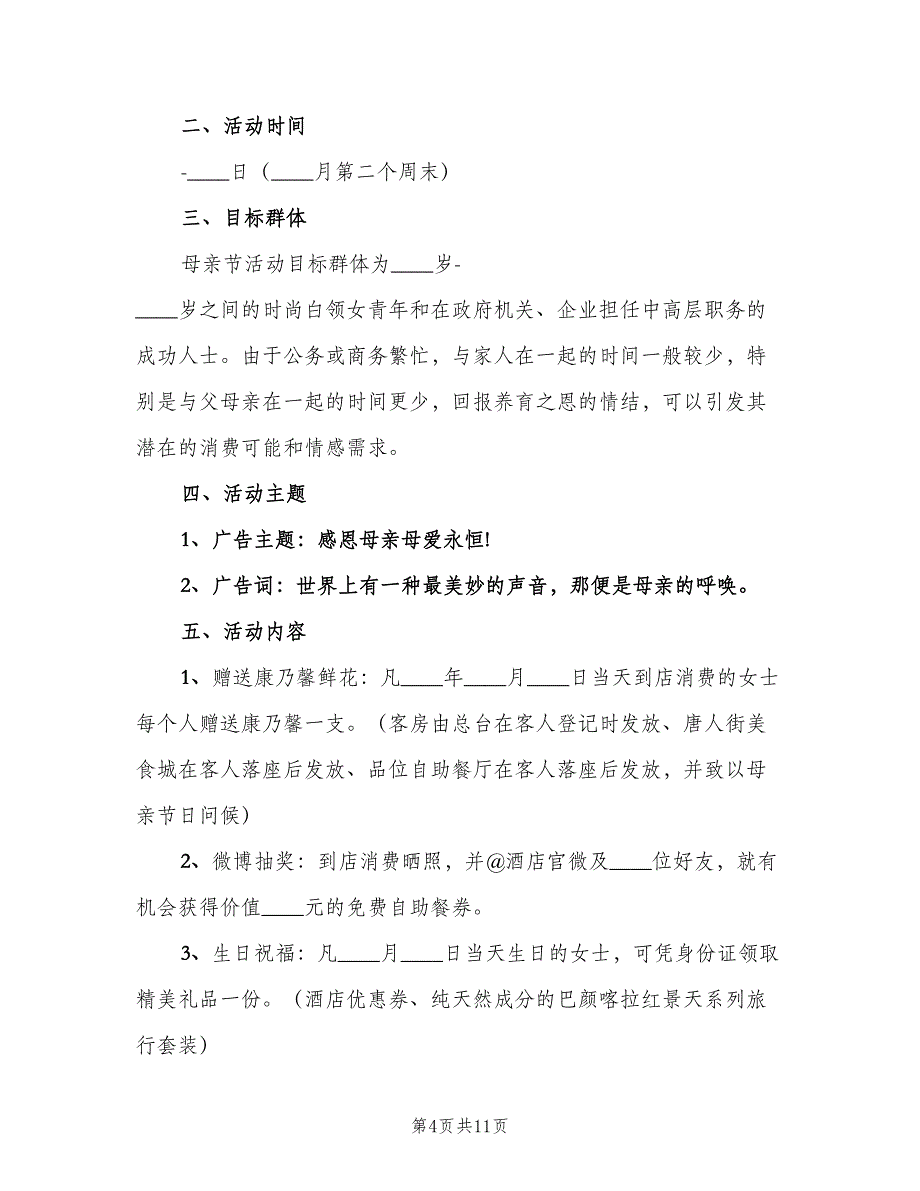 二、活动时间
-____日（____月第二个周末）
三、目标群体
母亲节活动目标群体为____岁-
____岁之间的时尚白领女青年和在政府机关、企业担任中高层职务的
成功人士。由于公务或商务繁忙，与家人在一起的时间一般较少，特
别是与父母亲在一起的时间更少，回报养育之恩的情结，可以引发其
潜在的消费可能和情感需求。
四、活动主题
1、广告主题：感恩母亲母爱永恒!
2、广告词：世界上有一种最美妙的声音，那便是母亲的呼唤。
五、活动内容
1、赠送康乃馨鲜花：凡____年____月____日当天到店消费的女士
每个人赠送康乃馨一支。（客房由总台在客人登记时发放、唐人街美
食城在客人落座后发放、品位自助餐厅在客人落座后发放，并致以母
亲节日问候）
2、微博抽奖：到店消费晒照，并@酒店官微及____位好友，就有
机会获得价值____元的免费自助餐券。
3、生日祝福：凡____月____日当天生日的女士，可凭身份证领取
精美礼品一份。（酒店优惠券、纯天然成分的巴颜喀拉红景天系列旅
行套装）
第4页共11页